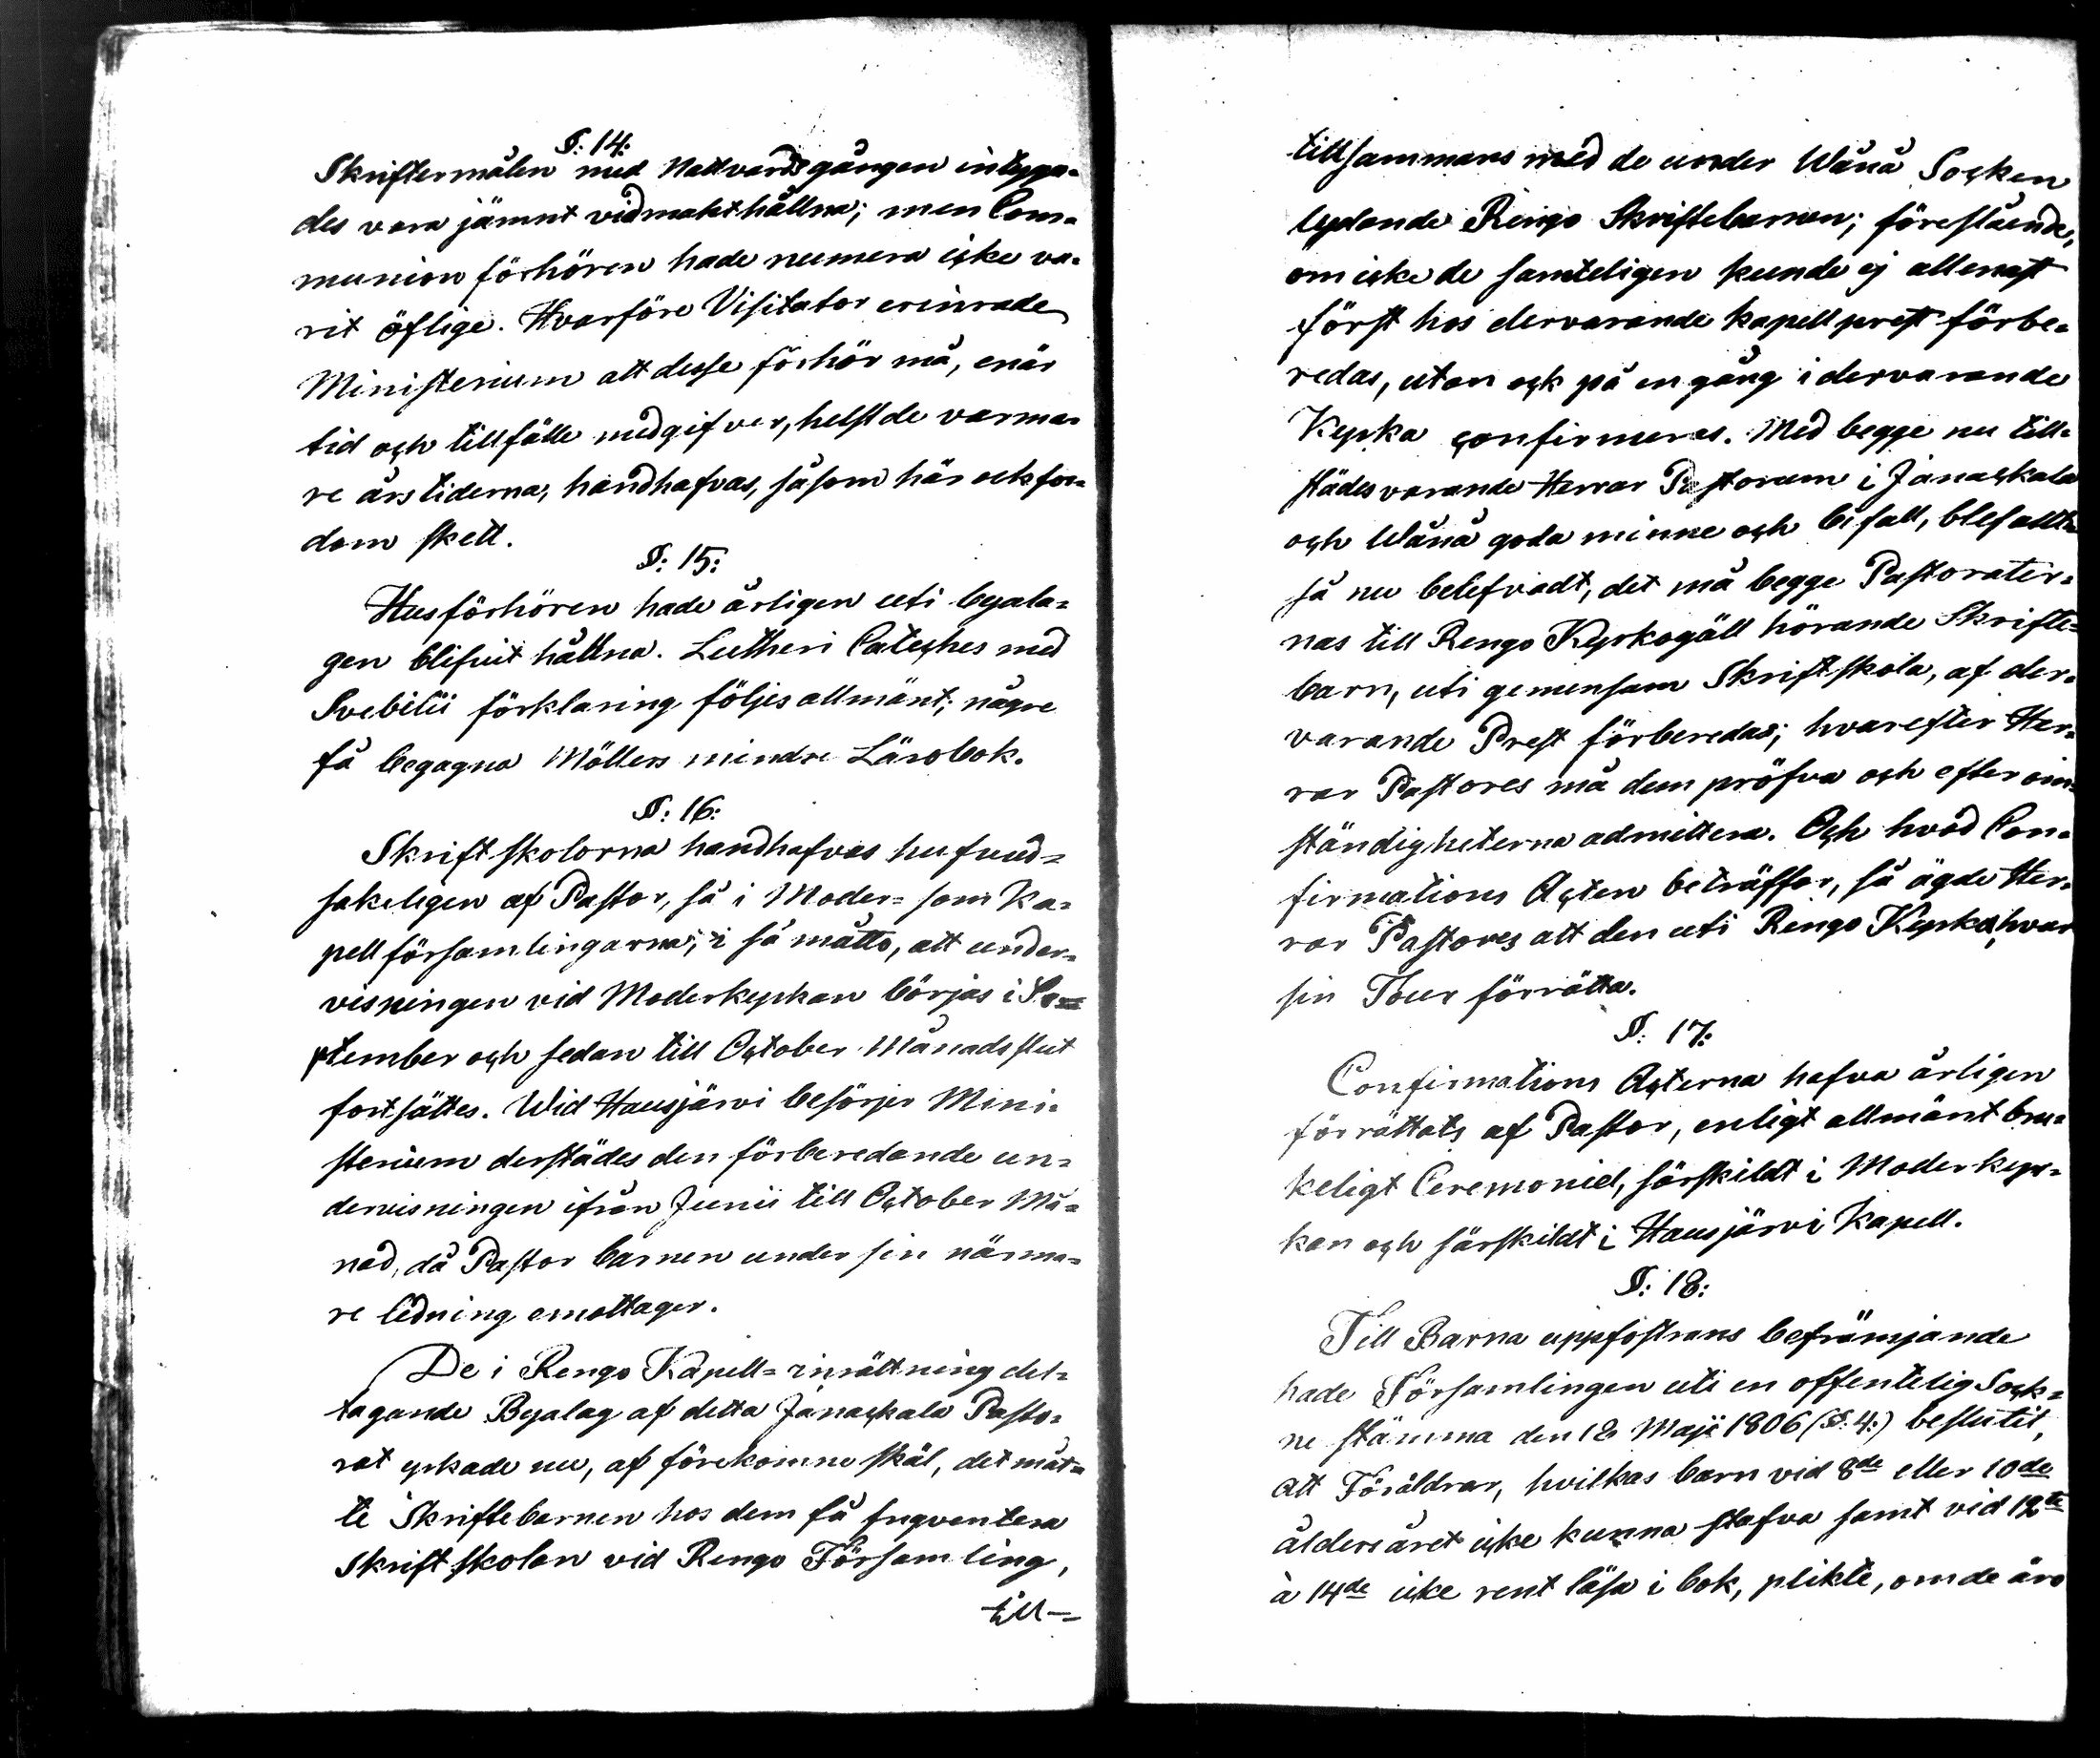 §: 14:
Skriftermålen med Nattvardsgången intyga=
des vara jämnt vidmakthållna; men Com=
munion förhören hade numera icke va=
rit öflige. Hvarföre Visitator erinrade
Ministerium att desse förhör må, enär
tid och tillfälle medgifver, helst de varma=
re årstiderna, handhafvas, såsom här ock for=
dom skett.
§: 15:
Husförhören hade årligen uti byala=
gen blifvit hållna. Lutheri Cateches med
Svebilii förklaring följes allmänt; någre
få begagna Möllers mindre Lärobok.
§: 16:
Skriftskolorna handhafvas hufvud=
sakeligen af Pastor, så i Moder= som Ka=
pellförsamlingarna; i så måtto, att under=
visningen vid Moderkyrkan börjas i Se=
ptember och sedan till October Månads slut
fortsättes. Wid Hausjärvi besörjer Mini=
sterium derstädes den förberedande un=
dervisningen ifrån Junii till October Må=
nad, då Pastor barnen under sin närma=
re ledning emottager.
De i Rengo Kapell=inrättning del=
tagande Byalag af detta Janackala Pasto=
rat yrkade nu, af förekomne skäl, det måt=
te Skriftebarnen hos dem få frqventera
Skriftskolan vid Rengo Församling,
till=
tillsammans med de under Wånå Socken
lydande Rengo Skriftebarnen; föreståendes,
om icke de samteligen kunde ej allenast
först hos dervarande kapellprest förbe=
redas, utan ock på en gång i dervarande
Kyrka confirmeras. Med begge nu till=
städesvarande Herrar Pastorum i Janackala
och Wånå goda minne och bifall, blef allt=
så nu belefvadt, det må begge Pastorater=
nas till Rengo Kyrkogäll hörande Skrifte=
barn, uti gemensam Skriftskola, af der=
varande Prest förberedas; hvarefter Her=
rar Pastores må dem pröfva och efter om=
ständigheterna admittera. Och hvad Con=
firmations Acten beträffar, så ägde Her=
rar Pastores att den uti Rengo Kyrka, hvar
sin Tour förrätta.
§: 17:
Confirmations Acterna hafva årligen
förrättats af Pastor, enligt allmänt bru=
keligt Ceremoniel, särskildt i Moderkyr=
kan och särskildt i Hausjärvi Kapell.
§: 18:
Till Barna uppfostrans befrämjande
hade Församlingen uti en offentelig Sock=
ne stämma den 18 Maji 1806 (§: 4:) beslutit,
att Föräldrar, hvilkas barn vid 8de eller 10de
åldersåret icke kunna stafva samt vid 12te
à 14de icke rent läsa i bok, plikte, om de äro